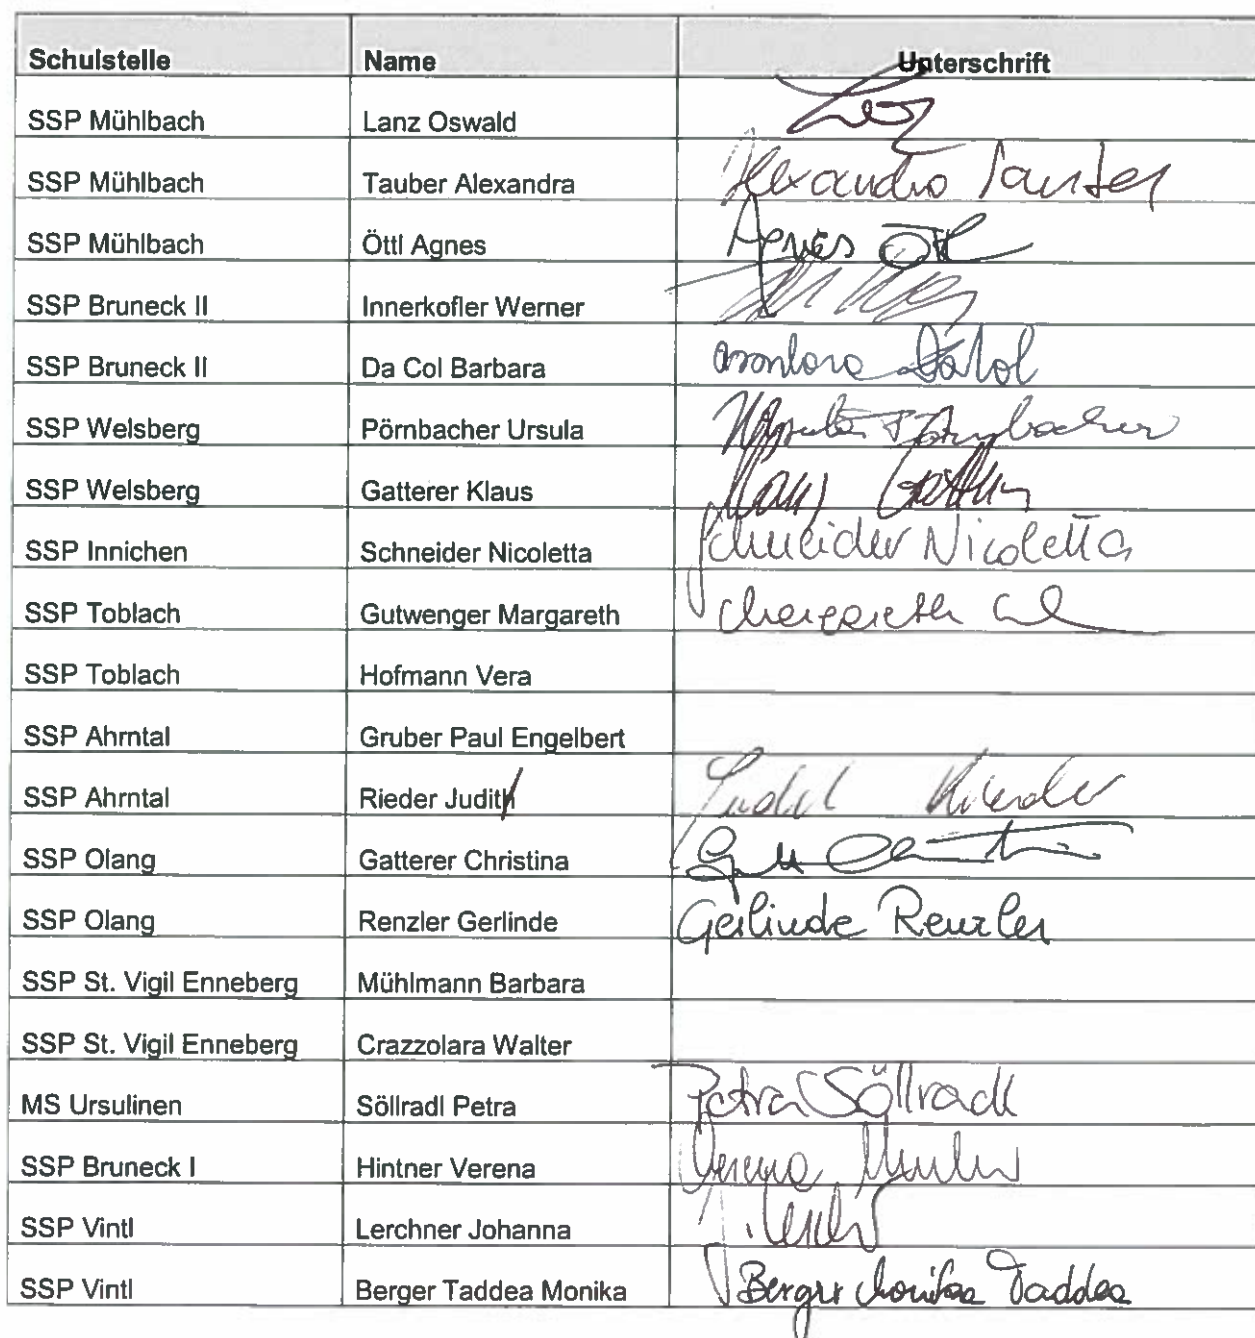 Schulstelle Name Unterschrift
SSP Mühlbach Lanz Oswald
SSP Mühlbach Tauber Alexandra Alexandra Tauber
SSP Mühlbach Öttl Agnes Agnes Öttl
SSP Bruneck II Innerkofler Werner
SSP Bruneck II Da Col Barbara
SSP Welsberg Pörnbacher Ursula Pörnbacher
SSP Welsberg Gatterer Klaus
SSP Innichen Schneider Nicoletta Schneider Nicoletta
SSP Toblach Gutwenger Margareth Margareth
SSP Toblach Hofmann Vera
SSP Ahrntal Gruber Paul Engelbert
SSP Ahrntal Rieder Judith Judith Rieder
SSP Olang Gatterer Christina
SSP Olang Renzler Gerlinde Gerlinde Renzler
SSP St. Vigil Enneberg Mühlmann Barbara
SSP St. Vigil Enneberg Crazzolara Walter
MS Ursulinen Söllradl Petra Petra Söllradl
SSP Bruneck I Hintner Verena Verena
SSP Vintl Lerchner Johanna
SSP Vintl Berger Taddea Monika Berger Monika Taddea